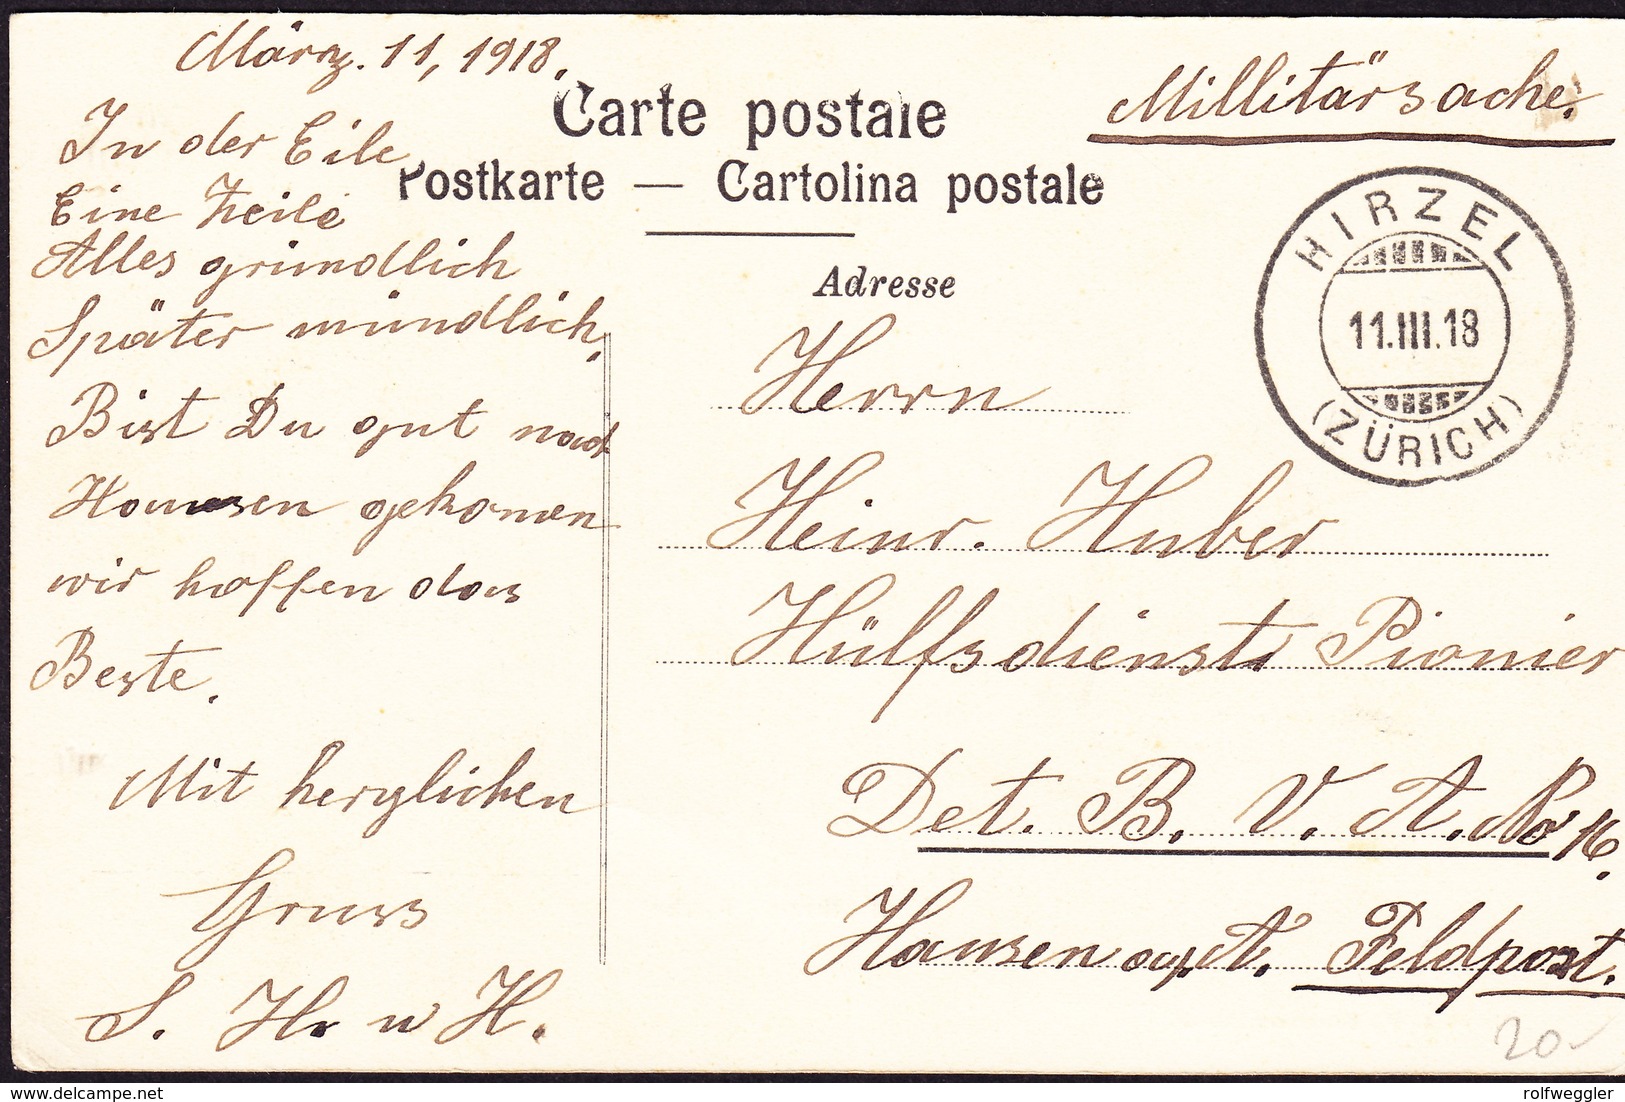 März. 11, 1918.
In der Eile
Eine Zeile
Alles gründlich
Später mündlich,
Bist Du gut nach
Hausen gekomen
wir hoffen das
Beste.
Mit herzlichen
Gruss
S. H. u H.
Carte postale
Postkarte — Cartolina postale
Millitärsache.
HIRZEL
11.III.18
(ZÜRICH)
Adresse
Herrn
Heinr. Huber
Hülfsdienst Pionier
Det. B. V. A. No 16.
Hausen a/A. Feldpost.
20-
delcampe.net
rolfweggler